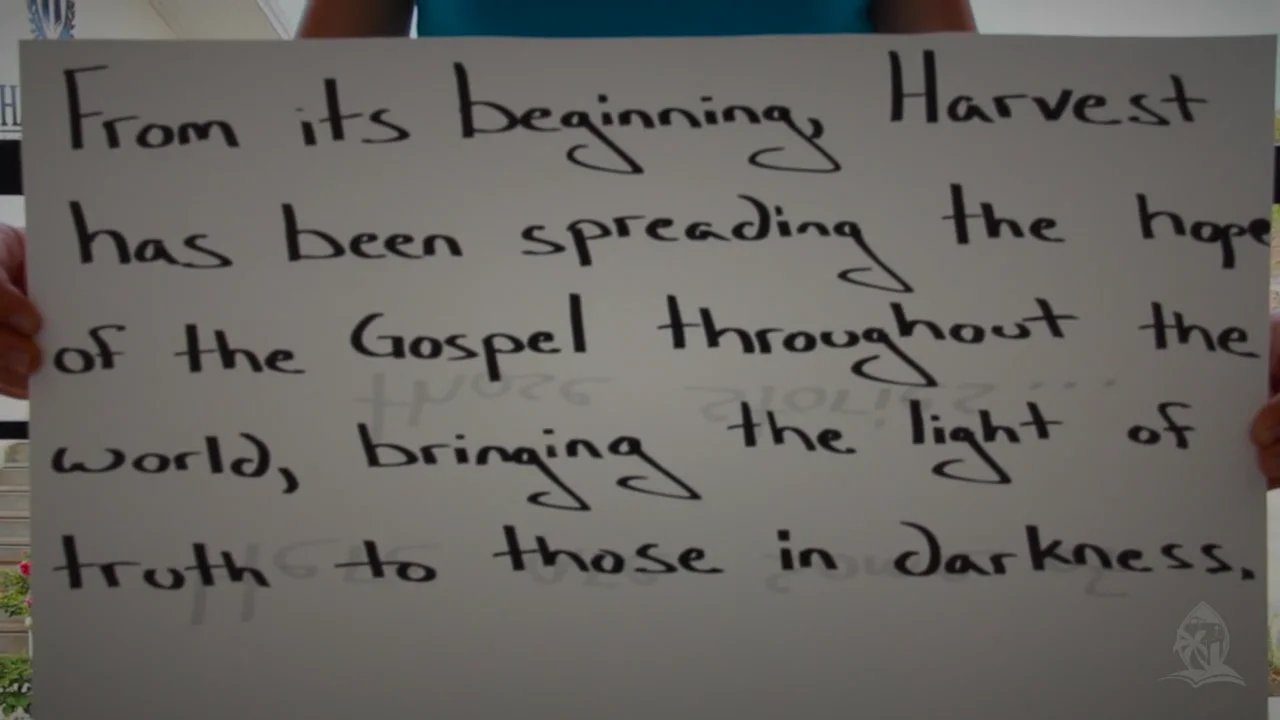 From its beginning, Harvest
has been spreading the hope
of the Gospel throughout the
world, bringing the light of
truth to those in darkness.